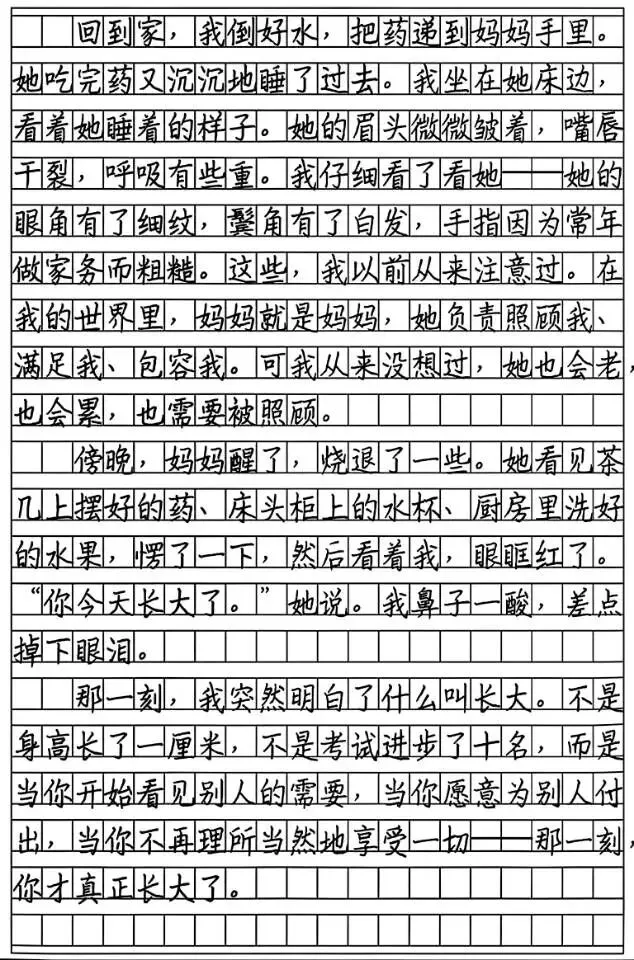 回到家，我倒好水，把药递到妈妈手里。
她吃完药又沉沉地睡了过去。我坐在她床边，
看着她睡着的样子。她的眉头微微皱着，嘴唇
干裂，呼吸有些重。我仔细看了看她——她的
眼角有了细纹，鬓角有了白发，手指因为常年
做家务而粗糙。这些，我以前从来注意过。在
我的世界里，妈妈就是妈妈，她负责照顾我、
满足我、包容我。可我从来没想过，她也会老，
也会累，也需要被照顾。
傍晚，妈妈醒了，烧退了一些。她看见茶
几上摆好的药、床头柜上的水杯、厨房里洗好
的水果，愣了一下，然后看着我，眼眶红了。
“你今天长大了。”她说。我鼻子一酸，差点
掉下眼泪。
那一刻，我突然明白了什么叫长大。不是
身高长了一厘米，不是考试进步了十名，而是
当你开始看见别人的需要，当你愿意为别人付
出，当你不再理所当然地享受一切——那一刻，
你才真正长大了。